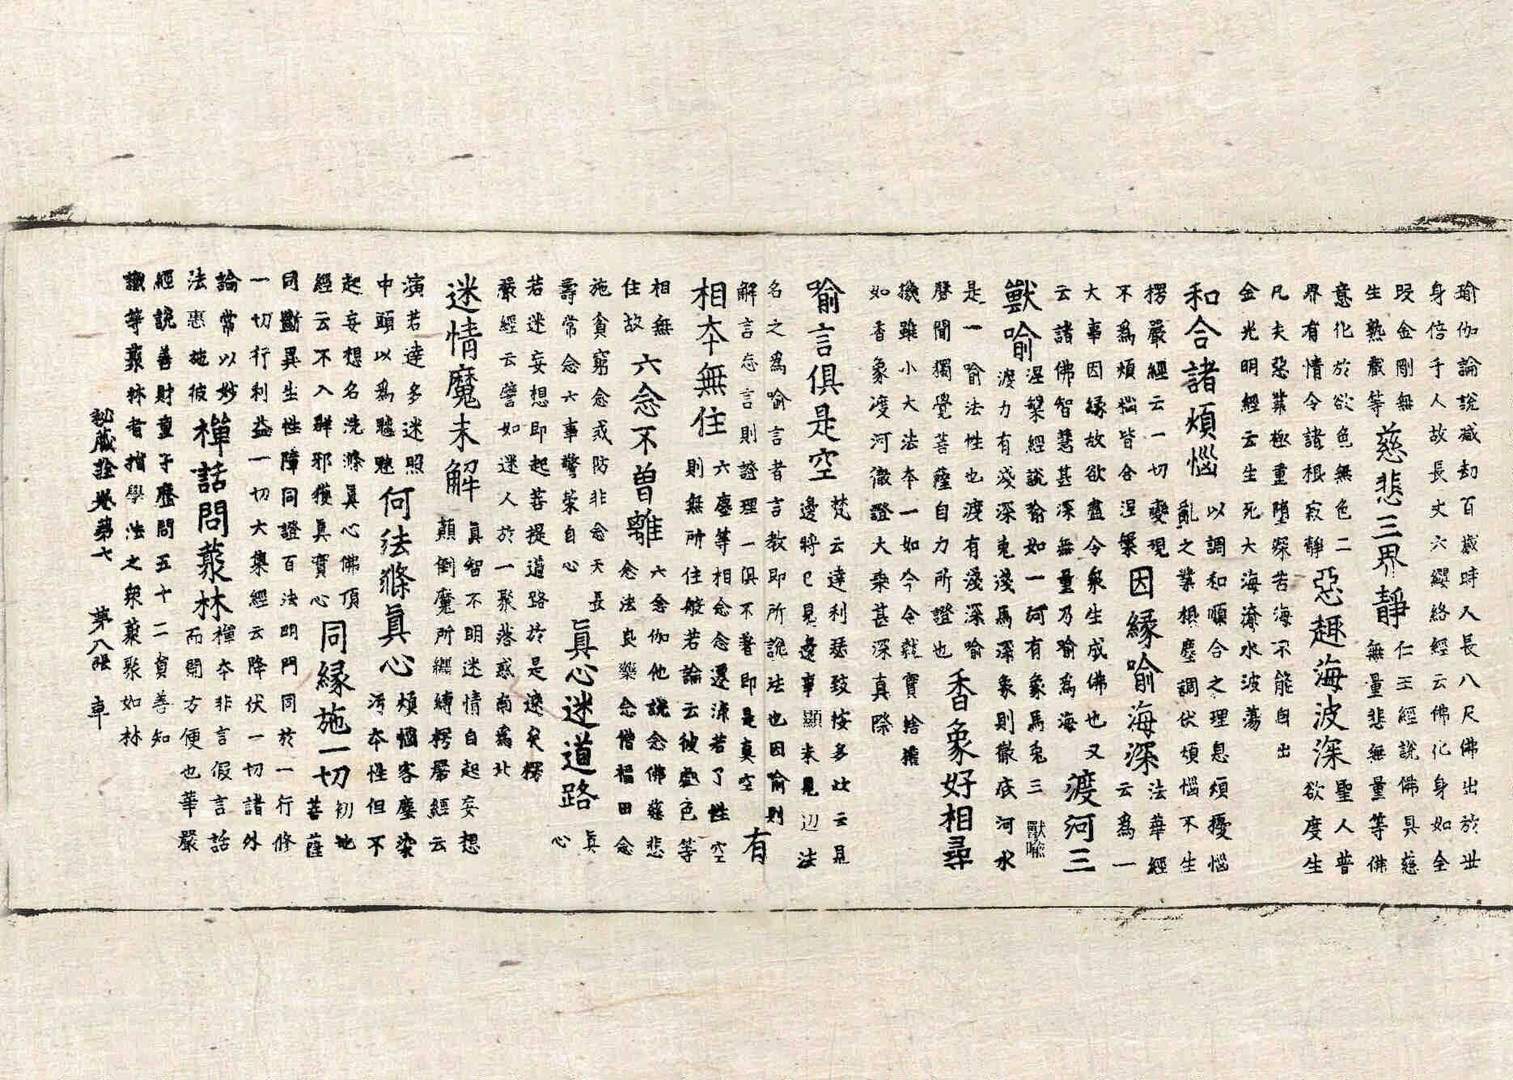 瑜伽論說減劫百歲時人長八尺佛出於世
身倍于人故長丈六纓絡經云佛化身如全
段金剛無
生熟藏等
慈悲三界靜
仁王經說佛具慈
無量悲無量等佛
意化於欲色無色二
界有情令諸根寂靜
惡趣海波深
聖人普
欲度生
凡夫惡業極重墮墜苦海不能自出
金光明經云生死大海濤水波蕩
和合諸煩惱
以調和順合之理息煩擾惱
亂之業根塵調伏煩惱不生
楞嚴經云一切變現
不為煩惱皆合涅槃
因緣喻海深
法華經
云為一
大事因緣故欲盡令衆生成佛也又
云諸佛智慧甚深無量乃喻為海
渡河三
獸喻
涅槃經說喻如一河有象馬兔三獸喻
渡力有淺深兔淺馬深象則徹底河水
是一喻法性也渡有淺深喻
聲聞獨覺菩薩自力所證也
香象好相尋
機雖小大法本一如今令競寶捨
如香象渡河徹證大乘甚深真際
喻言俱是空
梵云達利瑟致按多此云見
邊將已見邊事顯未見辺法
名之為喻言者言教即所說法也因喻則
解言忘言則證理一俱不著即是真空
有
相本無住
六塵等相念念遷流若了性空
則無所住般若論云彼虛色等
相無
住故
六念不曾離
六念伽他說念佛慈悲
念法良藥念僧福田念
施貧窮念戒防非念天長
壽常念六事警策自心
眞心迷道路
真
心
若迷妄想即起菩提道路於是遼矣楞
嚴經云譬如迷人於一聚落惑南為北
迷情魔未解
真智不明迷情自起妄想
顛倒魔所纏縛楞嚴經云
演若達多迷照
中頭以為魑魅
何法滌眞心
煩惱客塵染
污本性但不
起妄想名洗滌真心佛頂
經云不入群邪獲真實心
同緣施一切
初地
菩薩
同斷異生性障同證百法明門同於一行修
一切行利益一切大集經云降伏一切諸外
論常以妙
法惠施彼
禪話問叢林
禪本非言假言話
而開方便也華嚴
經說善財童子歷問五十二員善知
識等叢林者指學法之衆叢聚如林
秘藏詮卷第七　第八張　章